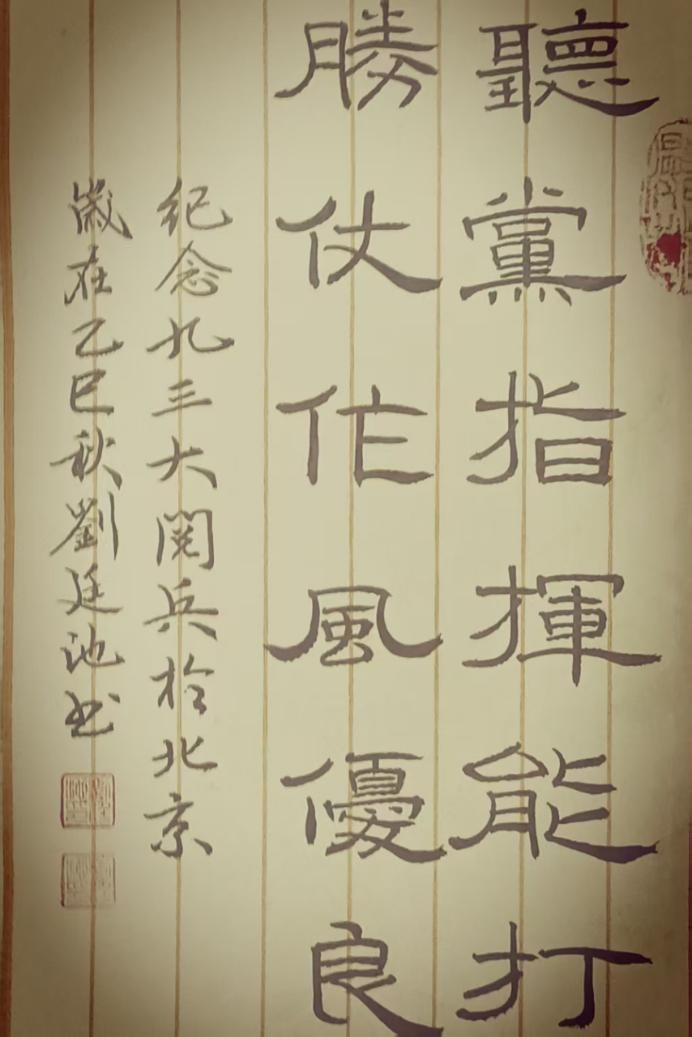 聽黨指揮能打
勝仗作風優良
紀念九三大閱兵於北京
歲在乙巳秋劉廷池书